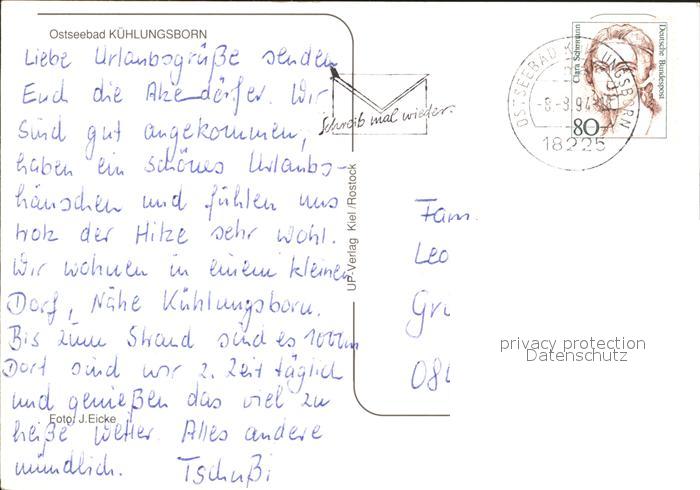 Ostseebad KÜHLUNGSBORN
Liebe Urlaubsgrüße senden
Euch die Wir
sind gut angekommen,
haben ein schönes Urlaubs-
häuschen und fühlen uns
trotz der Hitze sehr wohl.
Wir wohnen in einem kleinen
Dorf, Nähe Kühlungsborn.
Bis zum Strand sind es 1000m
Dort sind wir z. Zeit täglich
und genießen das viel zu
heiße Wetter. Alles andere
mündlich. Tschußi
Foto: J.Eicke
UP-Verlag Kiel/Rostock
Schreib mal wieder.
OSTSEEBAD KÜHLUNGSBORN
-8.-8.94
18225
Clara Schumann
Deutsche Bundespost
80
Fam.
Leo
Gr
084
privacy protection
Datenschutz